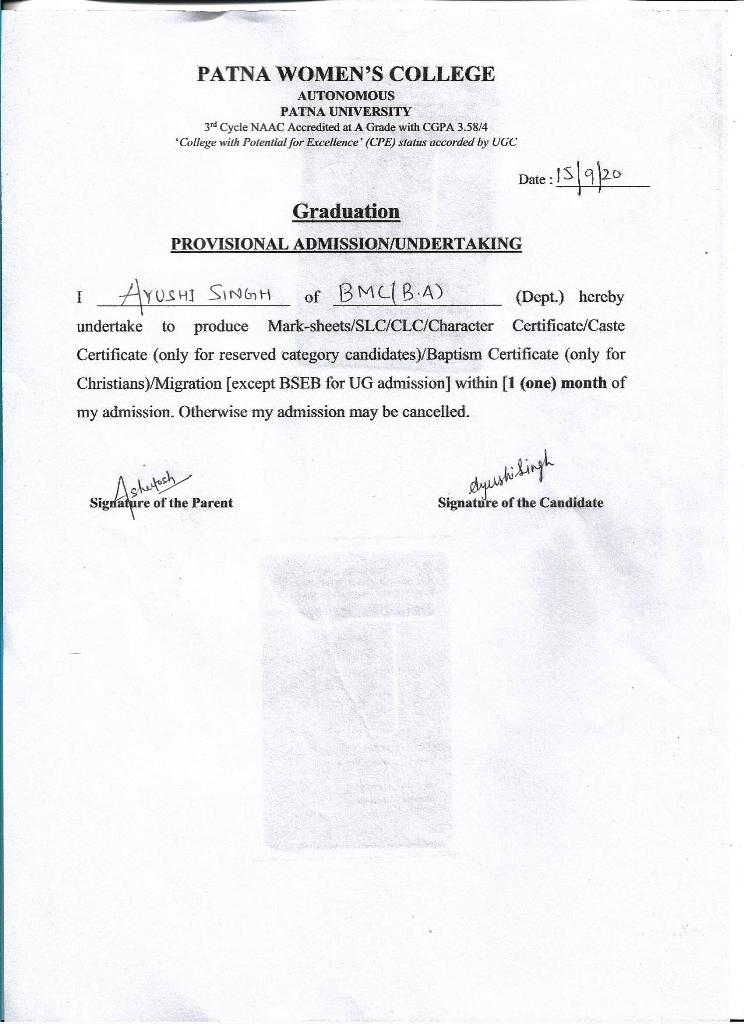 PATNA WOMEN'S COLLEGE
AUTONOMOUS
PATNA UNIVERSITY
3rd Cycle NAAC Accredited at A Grade with CGPA 3.58/4
'College with Potential for Excellence' (CPE) status accorded by UGC
Date : 15/9/20
Graduation
PROVISIONAL ADMISSION/UNDERTAKING
I AYUSHI SINGH of BMC(B.A) (Dept.) hereby
undertake to produce Mark-sheets/SLC/CLC/Character Certificate/Caste
Certificate (only for reserved category candidates)/Baptism Certificate (only for
Christians)/Migration [except BSEB for UG admission] within [1 (one) month of
my admission. Otherwise my admission may be cancelled.
Ashutosh
Signature of the Parent
Ayushi Singh
Signature of the Candidate